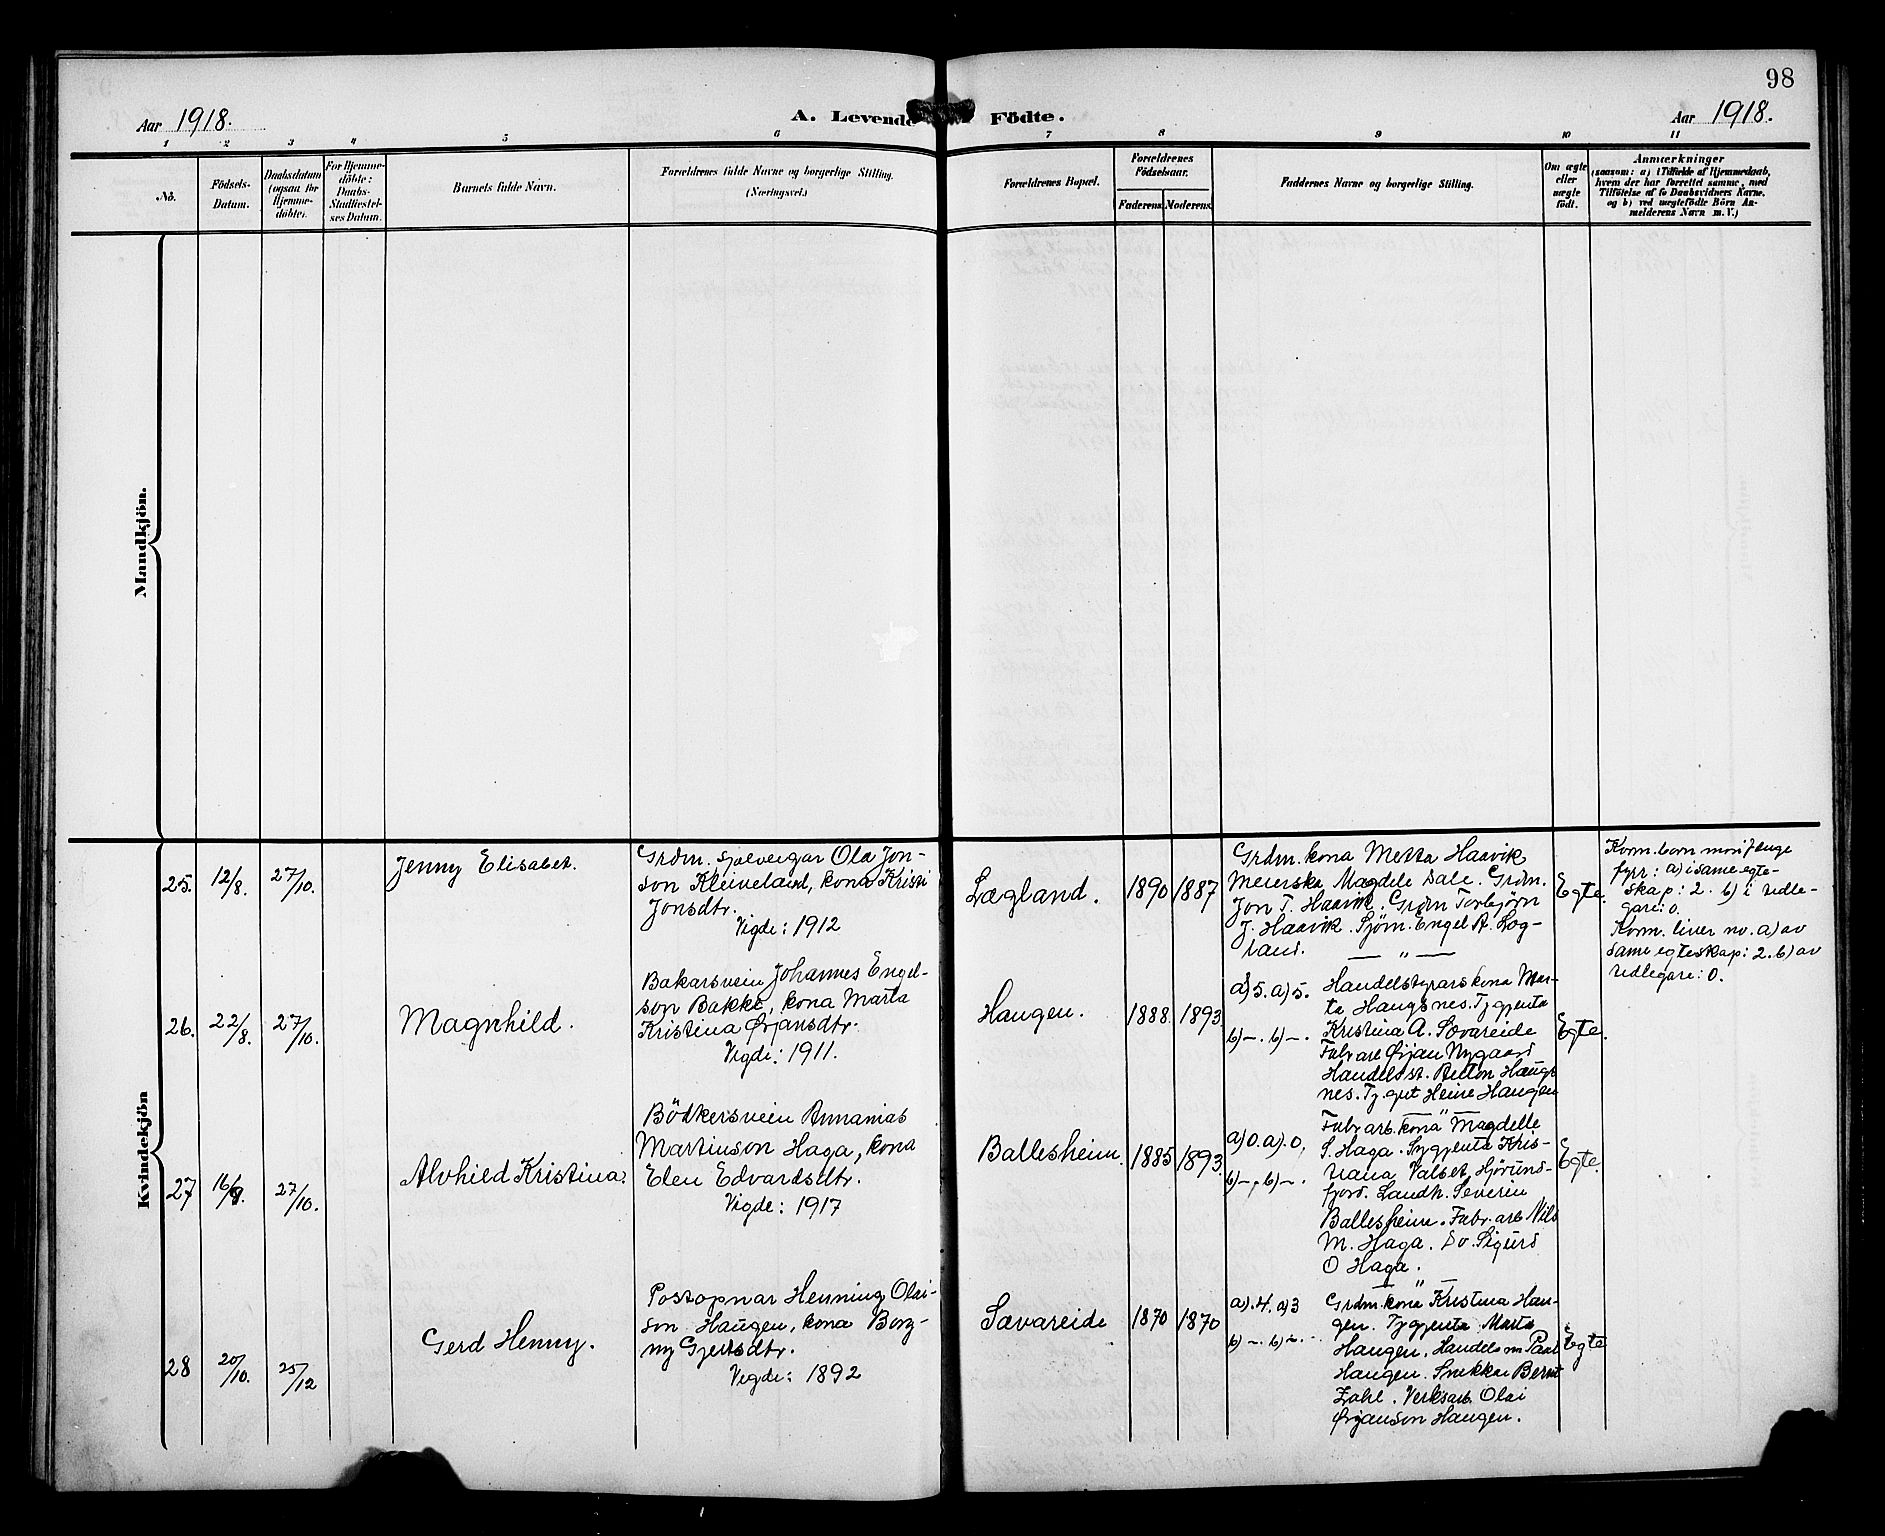 98
Aar 1918.
A. Levende Födte.
Aar 1918.
1 2 3 4 5 6 7 8 9 10 11
No.
Födsels-
Datum.
Daabsdatum
(ogsaa for
Hjemme-
döbte).
For Hjemme-
döbte:
Daabs-
Stadfæstel-
ses Datum.
Barnets fulde Navn.
Forældrenes fulde Navne og borgerlige Stilling.
(Næringsvei.)
Forældrenes Bopæl.
Forældrenes
Födselsaar.
Faderens.
Moderens.
Faddernes Navne og borgerlige Stilling.
Om ægte
eller
uægte
födt.
Anmærkninger
(saasom: a) i Tilfælde af Hjemmedaab,
hvem der har forrettet samme, med
Tilföielse af to Daabsvidners Navne,
og b) ved uægtefödte Börn An-
melderens Navn m. V.)
Mandkjön.
Kvindekjön
25.
12/8.
27/10.
Jenny Elisabet.
Grdm. sjølveigar Ola Jon-
son Kleiveland, kona Kristi
Jonsdtr.
Vigde: 1912
Lægland.
1890
1887
Grdm. kona Metta Haavik
Meierske Magdele Dale. Grdm.
Jon T. Haavik. Grdm Torbjørn
J. Haavik. Sjøm. Engel A. Løg-
land.
Egte.
Korm. born mori
fyrr: a) i same egte-
skap: 2. b) i utle-
gare: 0.
Korm. liver no. a) av
same egteskap: 2. b) av
utlegare: 0.
— " —
26.
22/8.
27/10.
Magnhild.
Bakarsvein Johannes Engel-
son Bakke, kona Marta
Kristina Ørjansdtr.
Vigde: 1911.
Haugen.
1888.
1893.
a) 5. a) 5.
b) —. b) —.
Handelstyrars kona Mar-
ta Haugsnes. Tygjenta
Kristina A. Sævareide
Fabr arb Ørjan Nygaard
Handelsst. Anton Haugs
nes. Tj. gut Heine Haugen
Egte.
— " —
27
16/9.
27/10.
Alvhild Kristina.
Bödkersvein Annanias
Martinson Haga, kona
Elen Edvardsdtr.
Vigde: 1917
Ballesheim.
1885
1893.
a) 0. a). 0,
b) —, b) —.
Fabr arb. kona Magdelle
S. Haga. Sygjenta Kris-
tiana Valset, Hjørund-
fjord. Landh. Severin
Ballesheim. Fabr. arb Nils
M. Haga. Do. Sigurd
O Haga.
Egte.
— " —
28
20/10.
25/12
Gerd Henny.
Postopnar Henning Olai-
son Haugen, kona Borg-
ny Gjertsdtr.
Vigde: 1892
Sævareide
1870
1870
a). 4. a) 3
b) —. b) —.
Grdm. kona Kristina Hau-
gen. Tygjenta Marta
Haugen. Handels m Paal
Haugen. Snikkar Bernt
Dahl. Verksarb. Olai
Ørjanson Haugen.
Egte